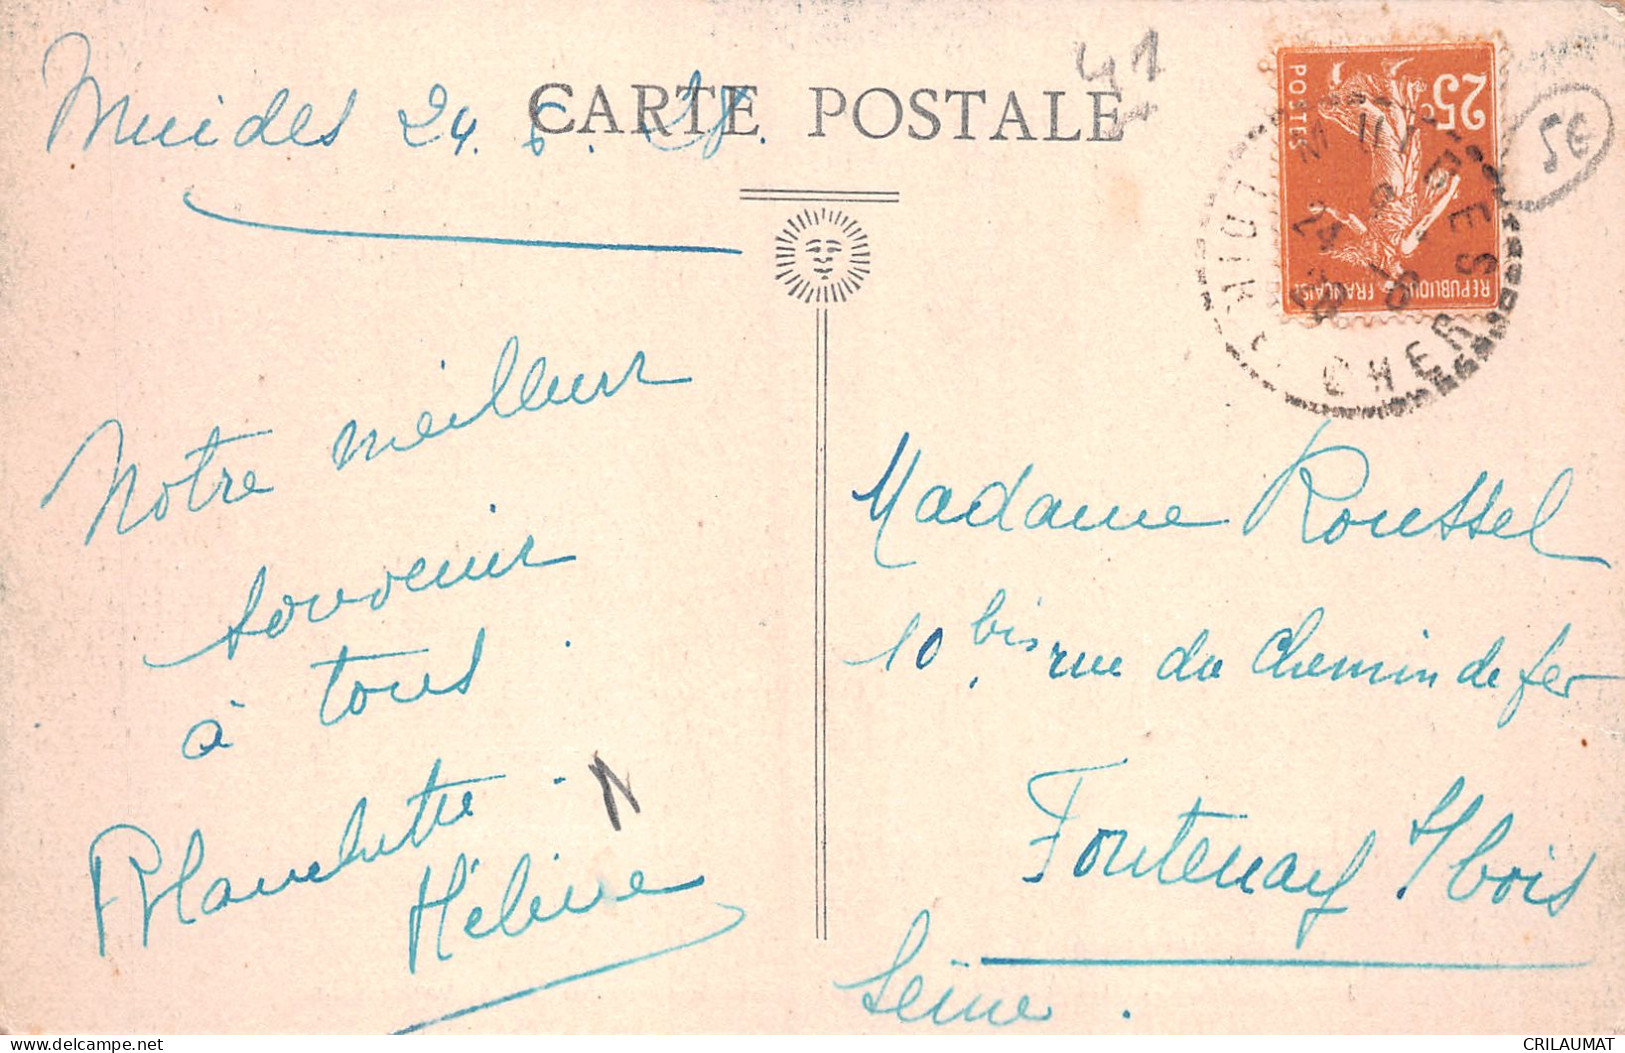 41
CARTE POSTALE
Muides 24. 6. 28.
25c
POSTES
REPUBLIQUE FRANÇAISE
MUIDES
24
28
LOIR & CHER
5€
Notre meilleur
souvenir
à tous.
Blanchette.
Hélène
Madame Roussel
10 bis rue du Chemin de fer
Fontenay s/bois
Seine.
delcampe.net
CRILAUMAT